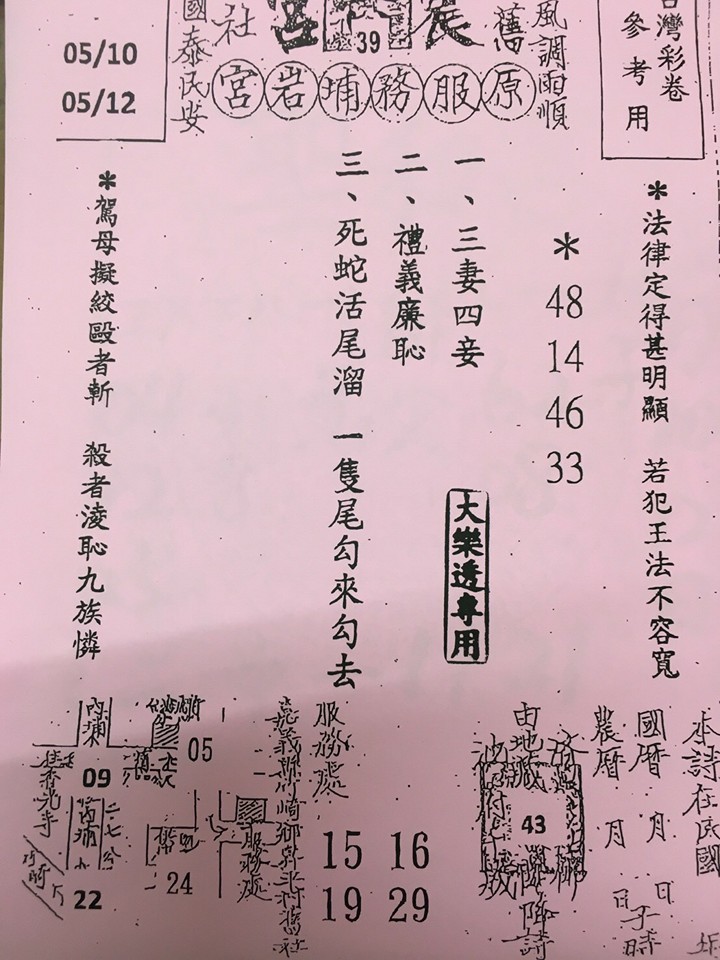 台灣彩卷
參考用
風調雨順
39
原服務埔岩宮
國泰民安
05/10
05/12
*法律定得甚明顯 若犯王法不容寬
*
48
14
46
33
一、三妻四妾
大樂透專用
二、禮義廉恥
三、死蛇活尾溜 一隻尾勾來勾去
*駕母擬絞毆者斬 殺者淩恥九族憐
本詩在民國
國曆 月 日
農曆 月 日子時
43
服務處
15 16
19 29
05
09
24
服務處
22